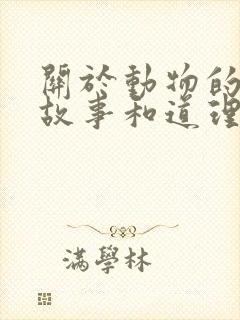 關於動物的
故事和道理
滿學林